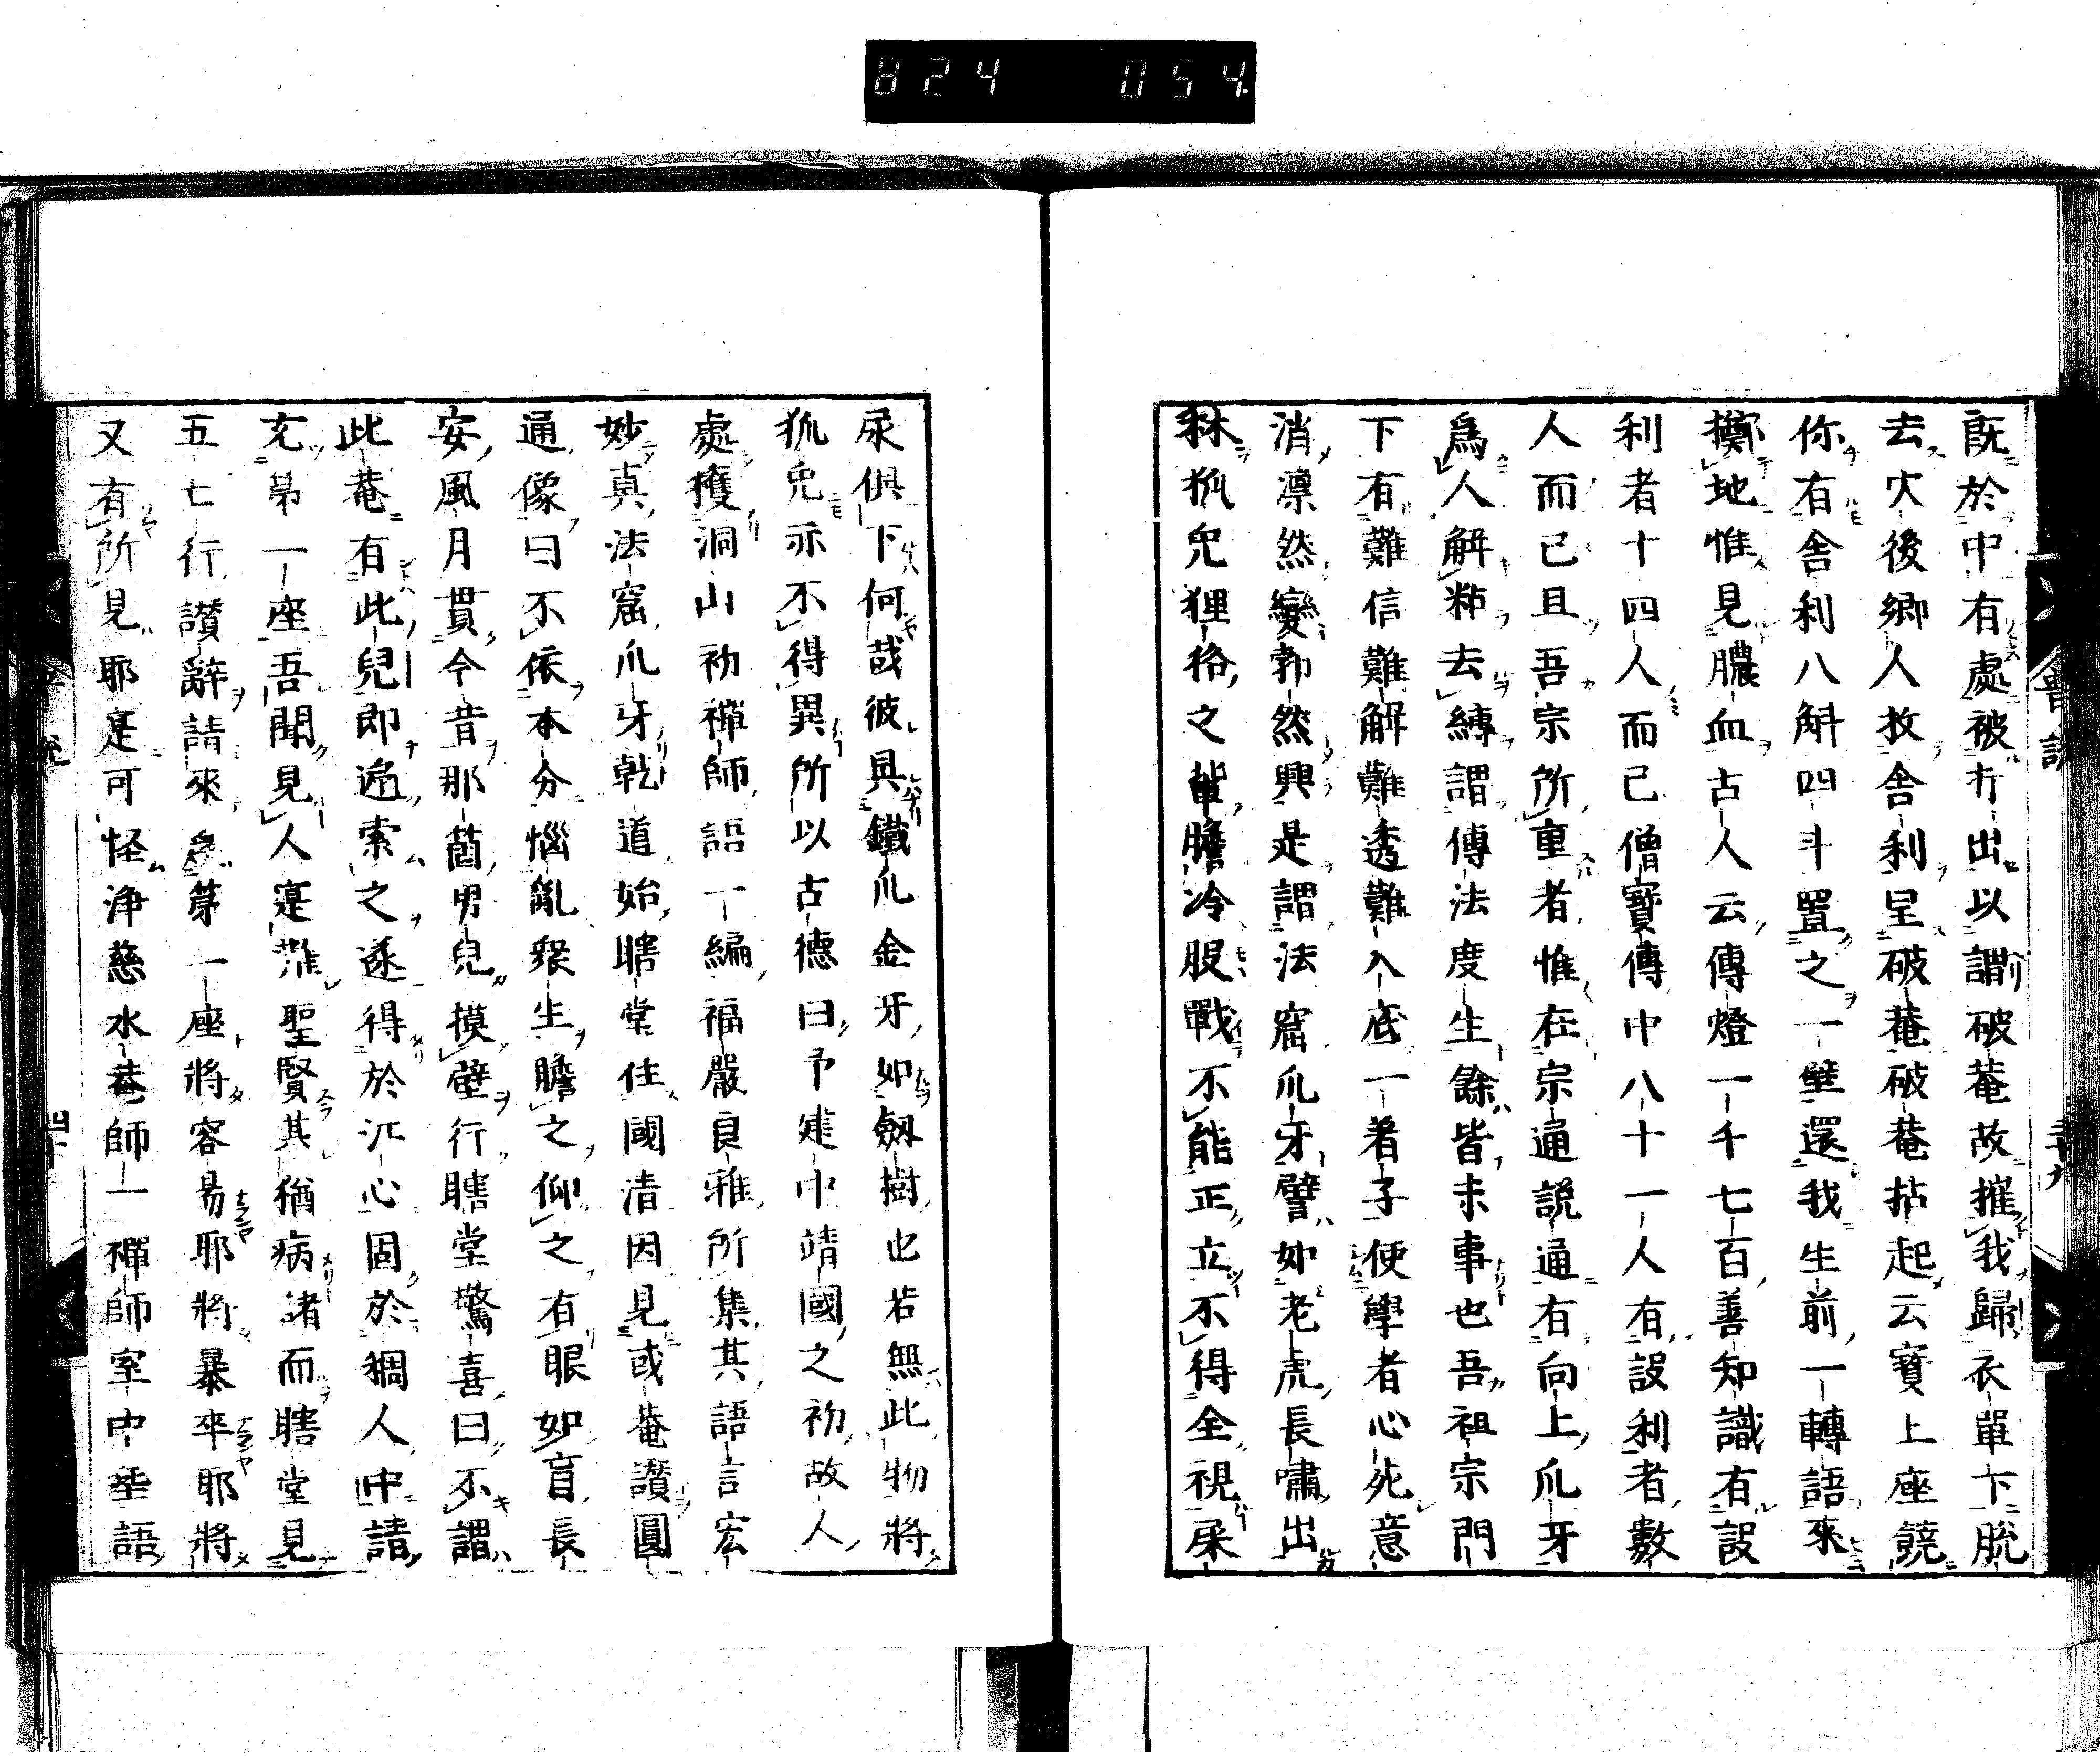 824 054.
既於中有處被打出以謂破菴故摧我歸衣單下脫
去火後鄉人拾舍利呈破菴破菴拈起云寶上座饒
你有舍利八斛四斗置之一壁還我生前一轉語來
擲地惟見膿血古人云傳燈一千七百善知識有設
利者十四人而已僧寶傳中八十一人有設利者數
人而已且吾宗所重者惟在宗通說通有向上爪牙
爲人解粘去縛謂傳法度生餘皆末事也吾祖宗門
下有難信難解難透難入底一著子便學者心死意
消凛然變勃然興是謂法窟爪牙譬如老虎長嘯出
林狐兔狸狢之輩膽冷股戰不能正立不得全視屎
尿俱下何哉彼具鐵爪金牙如劔樹也若無此物將
狐兔示不得異所以古德曰予建中靖國之初故人
處獲洞山初禪師語一編福嚴良雅所集其語言宏
妙真法窟爪牙乾道始瞎堂住國清因見或菴讚圓
通像曰不依本分惱亂衆生瞻之仰之有眼如盲長
安風月貫今昔那箇男兒摸壁行瞎堂驚喜曰不謂
此菴有此兒即遍索之遂得於江心固於稠人中請
充第一座吾聞見人寔難聖賢其猶病諸而瞎堂見
五七行讚辭請來爲第一座將容易耶將暴卒耶將
又有所見耶寔可怪淨慈水菴師一禪師室中垂語